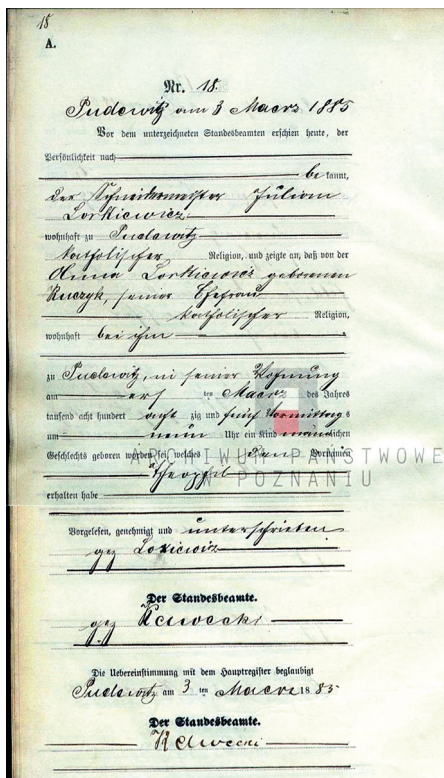 18
A.
Nr. 18.
Pudewitz am 3 Maerz 1885
Vor dem unterzeichneten Standesbeamten erschien heute, der
Persönlichkeit nach
bekannt,
der Schneidermeister Julian
Lorkiewicz
wohnhaft zu Pudewitz
katholischer Religion, und zeigte an, daß von der
Anna Lorkiewicz geborenen
Kuczyk, seiner Ehefrau
katholischer Religion,
wohnhaft bei ihm
zu Pudewitz, in seiner Wohnung
am ersten Maerz des Jahres
tausend acht hundert achtzig und fünf Vormittags
um neun Uhr ein Kind männlichen
Geschlechts geboren worden sei, welches den Vornamen
Theophil
erhalten habe
ARCHIWUM PAŃSTWOWE
W POZNANIU
Vorgelesen, genehmigt und unterschrieben
gez
Der Standesbeamte.
gez Kawecki
Die Uebereinstimmung mit dem Hauptregister beglaubigt
Pudewitz am 3 ten Maerz 1885
Der Standesbeamte.
Kawecki